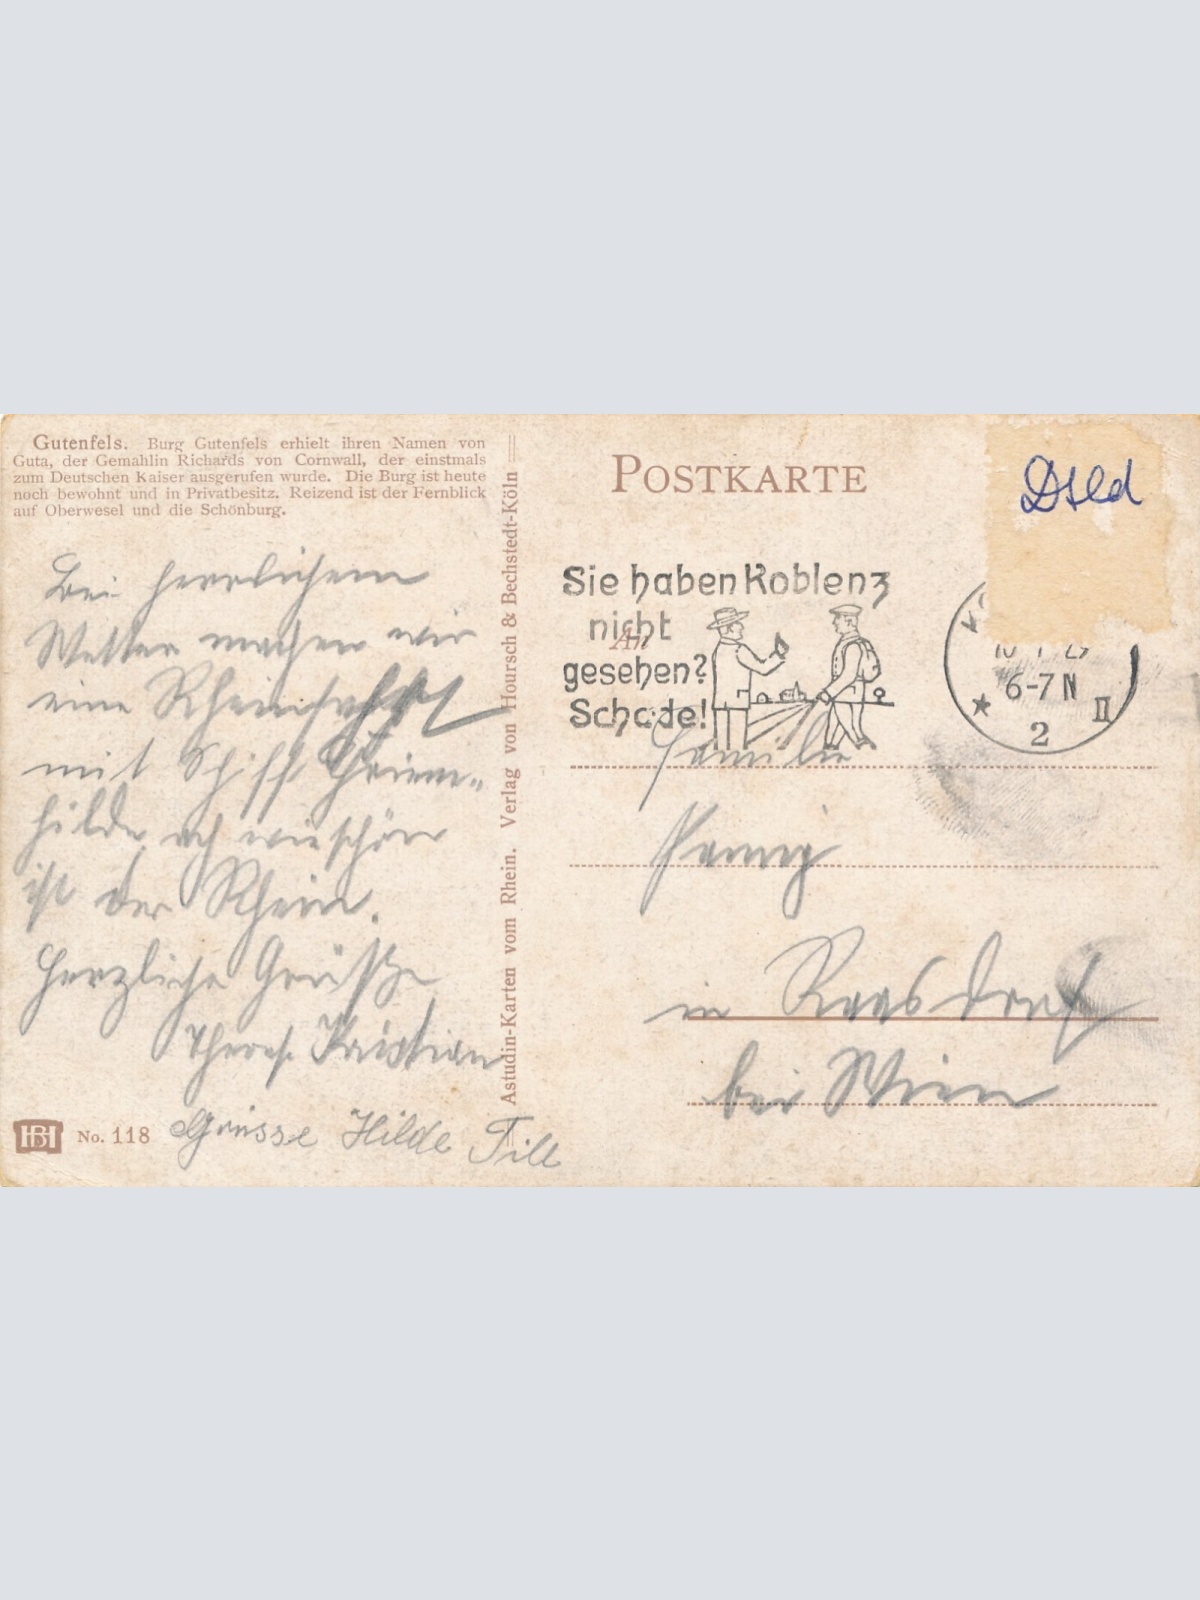 Gutenfels. Burg Gutenfels erhielt ihren Namen von
Guta, der Gemahlin Richards von Cornwall, der einstmals
zum Deutschen Kaiser ausgerufen wurde. Die Burg ist heute
noch bewohnt und in Privatbesitz. Reizend ist der Fernblick
auf Oberwesel und die Schönburg.
Bei herrlichem
Wetter machen wir
eine Rheinfahrt
mit Schiff Chriem-
hilde, ach wie schön
ist der Rhein.
Herzliche Grüße
Therese Kristian
Grüsse Hilde Till
No. 118
Astudin-Karten vom Rhein. Verlag von Hoursch & Bechstedt-Köln
POSTKARTE
Dsld
Sie haben Koblenz
nicht
gesehen?
Schade!
An
6-7 N
2 II
Familie
in Raasdorf
bei Wien